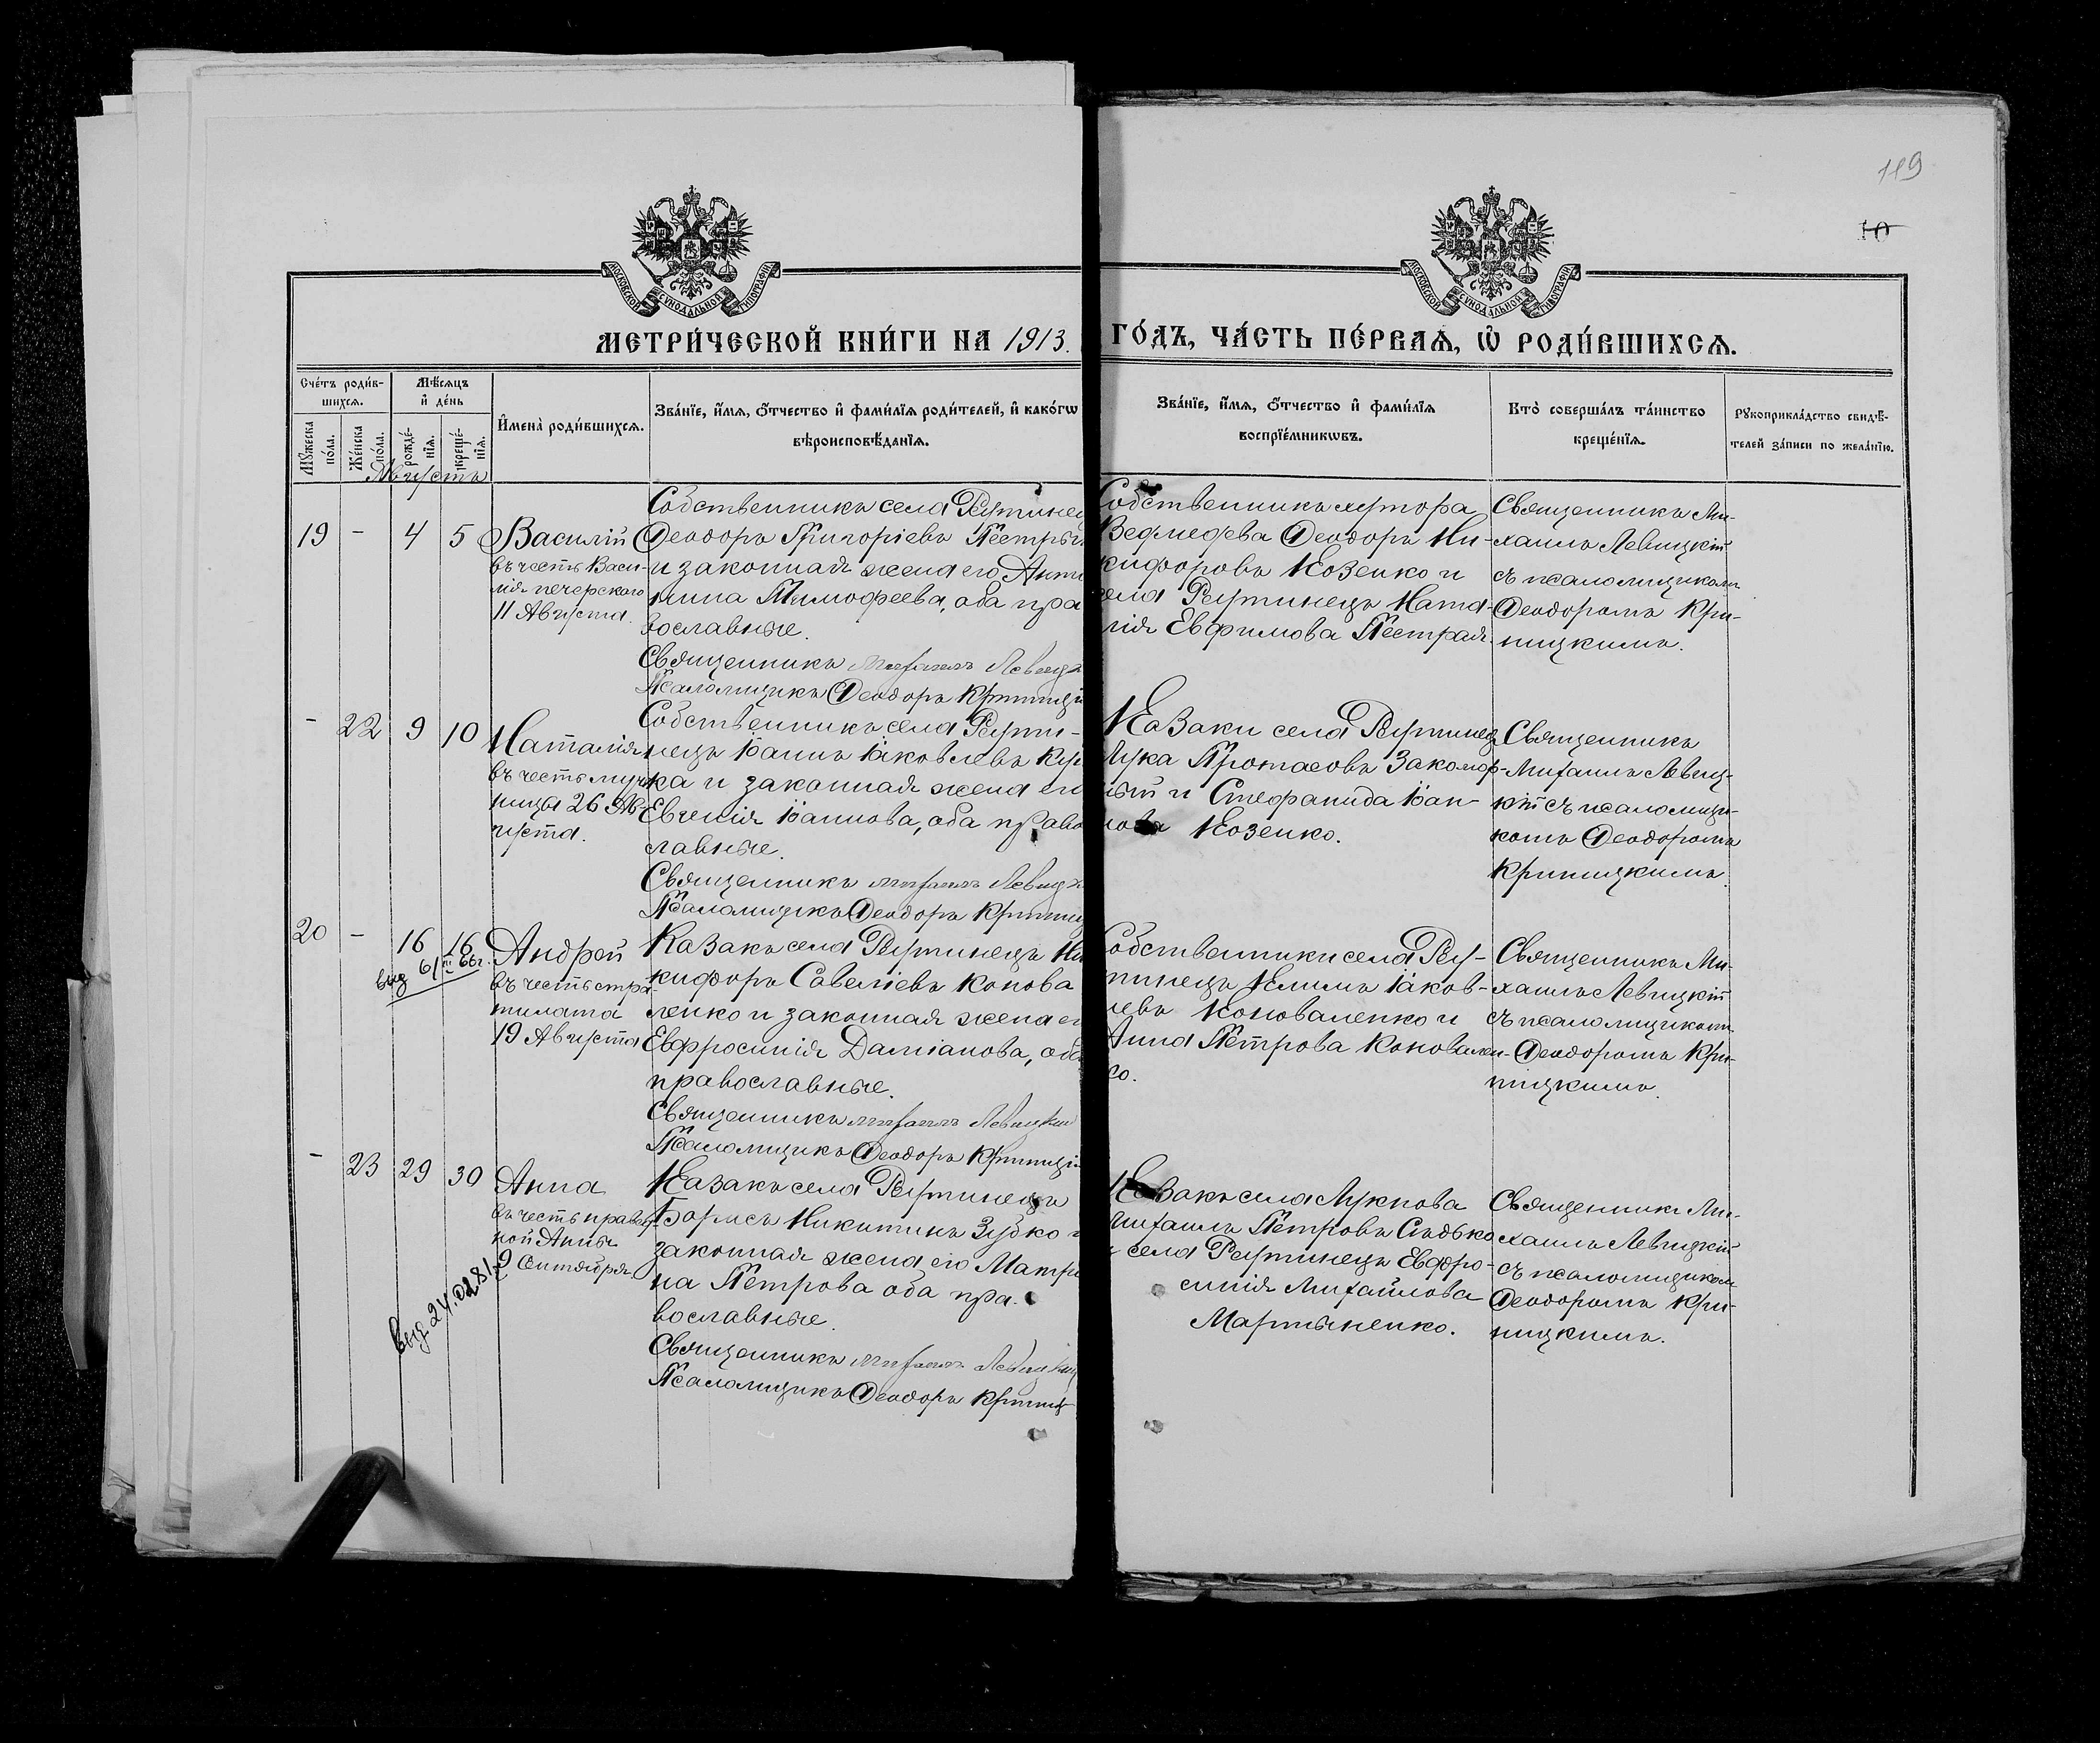 119
10
МОСКОВСКОЙ СѴНОДАЛЬНОЙ ТИПОГРАФІИ
МОСКОВСКОЙ СѴНОДАЛЬНОЙ ТИПОГРАФІИ
МЕТРИ́ЧЕСКОЙ КНИ́ГИ НА 1913. ГО́ДЪ, ЧА́СТЬ ПЕ́РВАѦ, Ѽ РОДИ́ВШИХСѦ.
Сче́тъ роди́в-
шихсѧ.
Мꙋ́жеска
по́ла.
Же́нска
по́ла.
Мѣ́сѧцъ
и҆ де́нь
рожде́-
нїѧ.
креще́-
нїѧ.
И҆мена̀ роди́вшихсѧ.
Зва́нїе, и҆́мѧ, ѻ҆́тчество и҆ фами́лїѧ роди́телей, и҆ како́гѡ
вѣроисповѣ́данїѧ.
Зва́нїе, и҆́мѧ, ѻ҆́тчество и҆ фами́лїѧ
воспрїе́мникѡвъ.
Кто̀ соверша́лъ та́инство
креще́нїѧ.
Рꙋкоприкла́дство свидѣ́-
телей за́писи по жела́нїю.
Августъ
19 - 4 5
Василій
въ честь Васи-
лія печерскаго
11 Августа.
Собственникъ села Рутинец
Ѳеодоръ Григоріевъ Пестры
и законная жена его Анто
нина Тимофеева, оба пра
вославные.
Священникъ Михаилъ Левицк
Псаломщикъ Ѳеодоръ Криниц
Собственникъ хутора
Ведмедева Ѳеодоръ Ни-
кифоровъ Козенко и
села Рутинецъ Ната-
лія Евфимова Пестрая.
Священникъ Ми-
хаилъ Левицкій
съ псаломщикомъ
Ѳеодоромъ Кри-
ницкимъ.
- 22 9 10
Наталія
въ честь муче
ницы 26 Ав-
густа.
Собственникъ села Рути-
нецъ Іоаннъ Іаковлевъ Кур
ка и законная жена его
Евгенія Іоаннова, оба право
славные.
Священникъ Михаилъ Левицк
Псаломщикъ Ѳеодоръ Криниц
Казаки села Рутинец
Лука Протасовъ Закомор-
ный и Стефанида Іоан-
нова Козенко.
Священникъ
Михаилъ Левиц-
кій съ псаломщи-
комъ Ѳеодоромъ
Криницкимъ.
20 - 16 16
Андрей
въ честь стра-
тилата
19 Августа
Казакъ села Рутинецъ Ни
кифоръ Савеліевъ Конова
ленко и законная жена ег
Евфросинія Даміанова, оба
православные.
Священникъ Михаилъ Левицкій
Псаломщикъ Ѳеодоръ Криницкі
Собственники села Ру-
тинецъ Климъ Іаков-
левъ Коноваленко и
Анна Петрова Коновален-
ко.
Священникъ Ми-
хаилъ Левицкій
съ псаломщикомъ
Ѳеодоромъ Кри-
ницкимъ.
- 23 29 30
Анна
въ честь правед
ной Анны
9 Сентября
выд. 24.02.81
Казакъ села Рутинецъ
Борисъ Никитинъ Зубко и
законная жена его Матро
на Петрова оба пра-
вославные.
Священникъ Михаилъ Левицкій
Псаломщикъ Ѳеодоръ Криниц
Казакъ села Лукнова
Михаилъ Петровъ Сидько
и села Рутинецъ Евфро-
синія Михайлова
Мартыненко.
Священникъ Ми-
хаилъ Левицкій
съ псаломщиком
Ѳеодоромъ Кри-
ницкимъ.